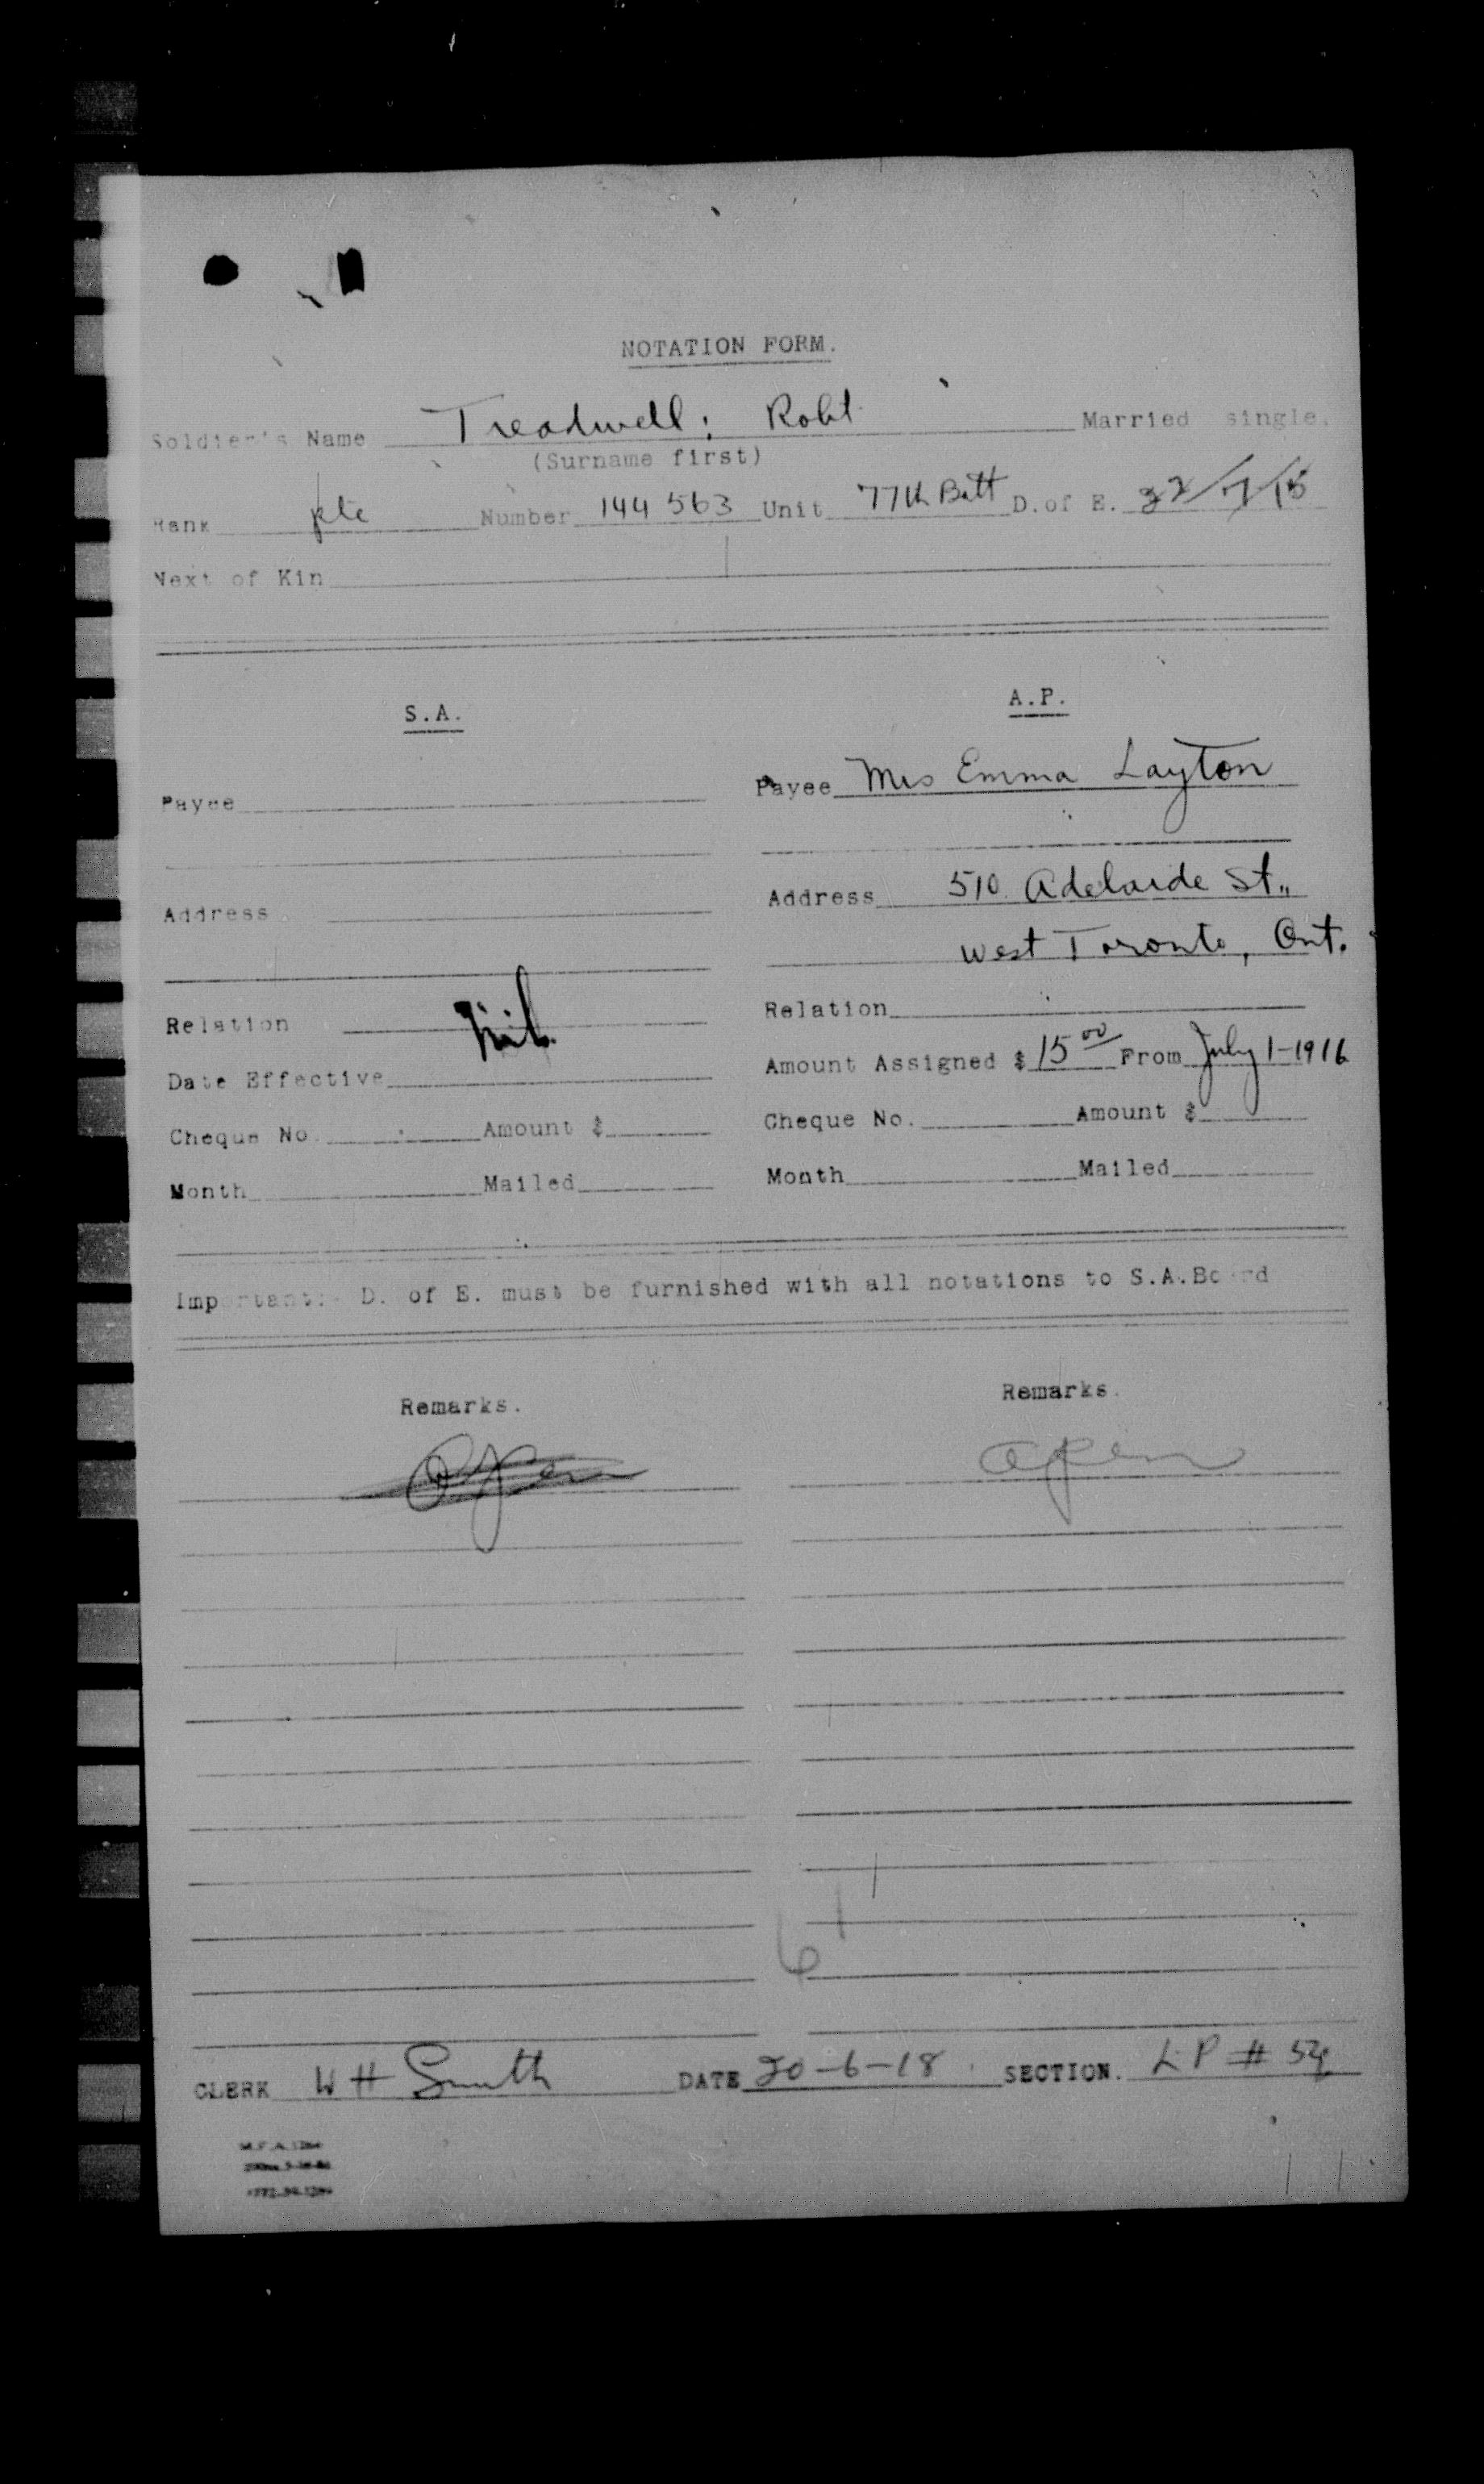 NOTATION FORM.
Soldier's Name Treadwell, Robt Married single.
(Surname first)
Rank pte Number 144563 Unit 77th Batt D. of E. 22/7/15
Next of Kin
S.A.
Payee
Address
Relation Nil.
Date Effective
Cheque No. Amount $
Month Mailed
A.P.
Payee Mrs Emma Layton
Address 510 Adelaide St.,
West Toronto, Ont.
Relation
Amount Assigned $ 15 00 From July 1-1916
Cheque No. Amount $
Month Mailed
Important:- D. of E. must be furnished with all notations to S.A.Board
Remarks.
Open
Remarks.
Open
61
CLERK W H Smith DATE 20-6-18 SECTION. L P #